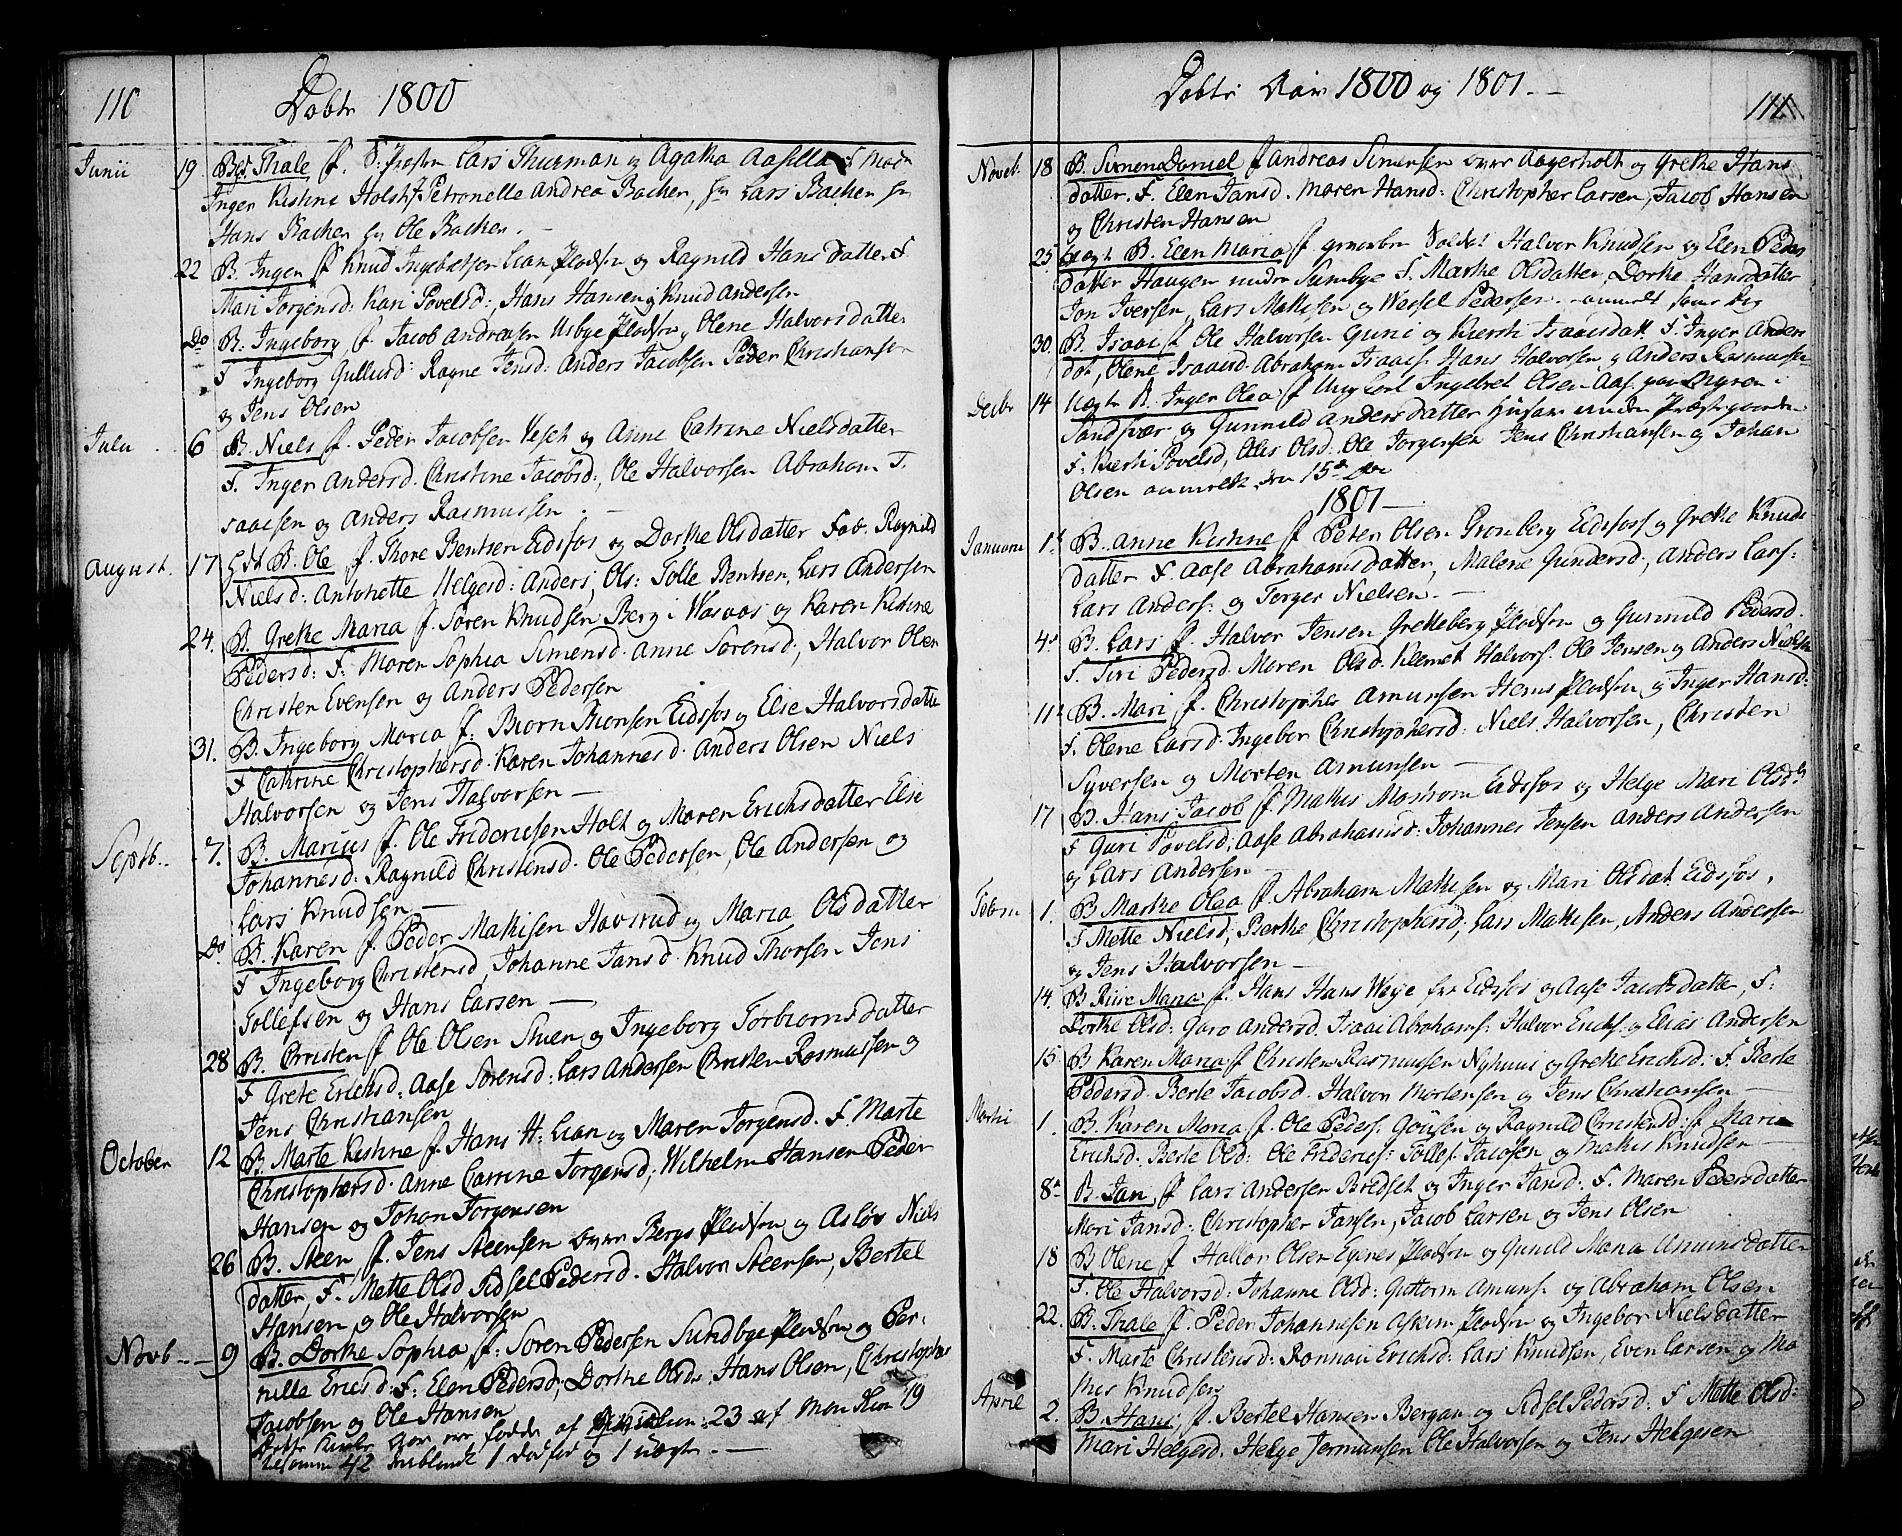 110
Døbte 1800
Junii 19 B. Thale f. S: Lars Thurman og Agatha Aasilla F. Mad.
Inger Kistine Holst Petronelle Andrea Bachen, Hr Lars Bachen Hr
Hans Bachen Hr Ole Bachen. —
22 B. Inger f Knud Ingebretsen Lian Pladsen og Ragnild Hans datter F
Mari Jorgensd: Kari Povelsd:, Hans Hansen og Knud Andersen
Do B. Ingeborg f. Jacob Andreasen Usbye Pladsen, Olene Halvorsdatter
F Ingeborg Gullusd: Ragne Jensd: Anders Jacobsen Peder Christiansen
og Jens Olsen
Julii 6 B. Niels f. Peder Jacobsen Veset og Anne Catrine Nielsdatter
F. Inger Andersd. Christine Jacobsd:, Ole Halvorsen Abraham I:
saacsen og Anders Rasmussen. —
August. 17 B. Ole f. Thore Bentsen Eidsfos og Dorthe Olsdatter Fad. Ragnild
Nielsd: Antonette Helgesd: Anders Ols: Tolle Bentsen, Lars Andersen
24. B. Grethe Maria f. Søren Knudsen Berg i Wasaas og Karen Kistine
Pedersd: F: Maren Sophia Simensd. Anne Sørensd:, Halvor Olsen
Christen Evensen og Anders Pedersen
31. B. Ingeborg Maria f: Biorn Thorsen Eidsfos og Else Halvorsdatte
F Cathrine Christophersd. Karen Johannesd. Anders Olsen Niels
Halvorsen og Jens Halvorsen —
Septb. 7. B. Marius f. Ole Friderichsen Holt og Maren Erichsdatter Else
Johannesd: Ragnild Christensd. Ole Pedersen, Ole Andersen og
Lars Knudsen —
Do. B. Karen f Peder Mathisen Havsrud og Maria Olsdatter
F Ingeborg Christensd, Johanne Jansd. Knud Thorsen Jens
Tollefsen og Hans Larsen —
28 B. Christen f Ole Olsen Stuen og Ingeborg Torbiornsdatter
F Grete Erichsd: Aase Sorensd: Lars Andersen Christen Rasmussen og
Jens Christiansen
October 12 B. Marte Kistine f. Hans H: Lian og Maren Jorgensd. F. Marte
Christophersd: Anne Catrine Jorgensd; Wilhelm Hansen Peder
Hansen og Johan Jorgensen
26 B. Steen f. Jens Steensen Bergs Pladsen og Asløv Niels
datter, F. Mette Olsd Sidsel Pedersd. Halvor Steensen, Bertel
Hansen og Ole Halvorsen
Novb — 9 B. Dorthe Sophia f: Soren Pedersen Sundbye Pladsen og Per-
nille Ericsd: F: Elen Pedersd; Dorthe Olsd: Hans Olsen, Christopher
Jacobsen og Ole Hansen
Dette Kirke Aar ere fødde af Qvindkion: 23 af Mandkion 19
tilsamen 42 iblandt 1 dødfød og 1 uægte. —
Døbte Aar 1800 og 1801. —
111
Novbr. 18 B. Simen Daniel f Andreas Simensen Aagerholt og Grethe Hans
datter. F. Elen Jansd. Maren Hansd: Christopher Larsen, Jacob Hansen
og Christen Hansen
25 Uægte B. Elen Maria f Soldat Halvor Knudsen og Elen Peders
datter Haugen under Sundbye F. Marthe Olsdatter, Dorthe Hansdatter
Jon Iversen, Lars Mathisen og Wessel Pedersen. — anmelt samme Dag
30. B. Isaac f Ole Halvorsen Guri og Kiersti Isaacsdatt F. Inger Anders
dat, Olene Isaacsd. Abraham Isaacs. Hans Halvorsen og Anders Rasmussen
Decbr 14 Uægte B. Inger Olea f Ungkarl Ingebret Olsen Aas paa Myren i
Sandsvær og Gunnild Andersdatter Huusm under Præstegaarden
F. Kiersti Povelsd, Olis Olsd. Ole Jorgensen Jens Christiansen og Johan
Olsen anmelt den 15de Dec
1801 —
Januarii 1. B. Anne Kistine f Peter Olsen Gronberg Eidsfos og Grethe Knuds
datter F. Aase Abrahamsdatter, Malene Gundersd:, Anders Lars:
Lars Anders: og Torger Nielsen. —
4. B. Lars f. Halvor Jensen Gretteberg Pladsen og Gunnild Pedersd.
F. Siri Pedersd. Maren Olsd. Klemet Halvors. Ole Jensen og Anders Nielsen
11 B. Mari f. Christopher Amunsen Hems Pladsen og Inger Hansd:
F. Olene Larsd: Ingebor Christophersd: Niels Halvorsen, Christen
Syversen og Morten Amunsen —
17 B. Hans Jacob f Mathis Mostrom Eidsfos og Helge Mari Olsd
F Guri Povelsd, Aase Abrahamsd: Johannes Jensen Anders Andersen
og Lars Andersen —
Febru 1. B Marthe Olea f. Abraham Mathisen og Mari Olsdat Eidsfos.
F Mette Nielsd; Berthe Christophersd; Lars Mathisen, Anders Andersen
og Jens Halvorsen —
14. B Maria f. Hans Hans Weje Eidsfos og Aase Jacobsdatter, F:
Dorthe Olsd: Goro Andersd. Isaac Abrahams: Halvor Erichs: og Elias Andersen
15. B Karen Maria f Christen Rasmussen Nyhuus og Grethe Erichsd: F. Berte
Pedersd. Berte Jacobsd. Halvor Mortensen og Jens Christiansen —
Martii 1. B. Karen Maria f. Ole Peders: og Ragnild Christensd: F. Maria
Erichsd. Berte Olsd: Ole Friderics: Tollef Jacobsen og Mathis Knudsen —
8 B. Jan f Lars Andersen Bredset og Inger Jansd: F. Maren Pedersdatter
Mari Jansd: Christopher Jansen, Jacob Larsen og Jens Olsen
18 B Olene f Hallor Olsen Egnes Pladsen og Gunild Maria Amunsdatter
F. Ole Halvorsd: Johanne Olsd: Guttorm Amuns: og Abraham Olsen
22. B. Thale f. Peder Johannesen Askim Pladsen og Ingebor Nielsdatter
F. Marte Christensd: Ronnau Erichsd: Lars Knudsen, Even Larsen og Ma
this Knudsen
April 2. B. Hans f. Bertel Hansen Bergan og Sidsel Pedersd: F Mette Olsd:
Mari Helgesd. Helge Jermunsen Ole Halvorsen og Jens Helgesen